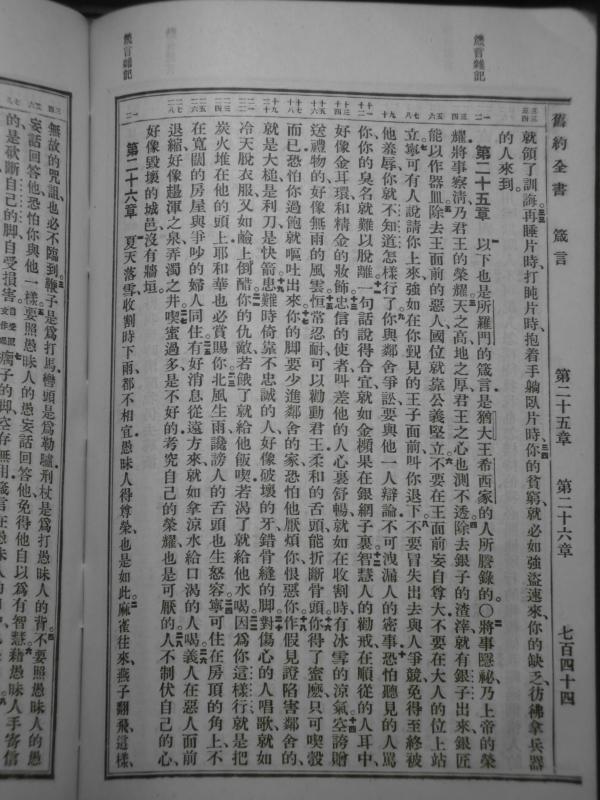 箴言雜記
舊約全書　箴言　第二十五章　第二十六章　七百四十四
就領了訓誨再睡片時、打盹片時、抱着手躺臥片時、你的貧窮、就必如強盜速來、你的缺乏、彷彿拿兵器
的人來到。
第二十五章　以下也是所羅門的箴言、是猶大王希西家的人所謄錄的○將事隱祕、乃上帝的榮
耀、將事察清、乃君王的榮耀天之高、地之厚、君王之心也測不透除去銀子的渣滓、就有銀子出來、銀匠
能以作器皿除去王面前的惡人、國位就靠公義堅立不要在王面前妄自尊大、不要在大人的位上站
立寧可有人說請你上來、強如在你覲見的王子面前叫你退下不要冒失出去與人爭競、免得至終被
他羞辱、你就不知道怎樣行了你與鄰舍爭訟、要與他一人辯論、不可洩漏人的密事恐怕聽見的人罵
你、你的臭名就難以脫離一句話說得合宜、就如金蘋果在銀網子裏智慧人的勸戒、在順從的人耳中、
好像金耳環和精金的妝飾忠信的使者、叫差他的人心裏舒暢、就如在收割時有冰雪的涼氣空誇贈
送禮物的、好像無雨的風雲恒常忍耐可以勸動君王、柔和的舌頭能折斷骨頭你得了蜜麼只可喫彀
而已、恐怕你過飽就嘔吐出來你的脚要少進鄰舍的家、恐怕他厭煩你、恨惡你作假見證陷害鄰舍的、
就是大槌、是利刀、是快箭患難時倚靠不忠誠的人、好像破壞的牙、錯骨縫的脚對傷心的人唱歌、就如
冷天脫衣服、又如鹼上倒酷你的仇敵若餓了、就給他飯喫、若渴了、就給他水喝因爲你這樣行、就是把
炭火堆在他的頭上、耶和華也必賞賜你北風生雨、讒謗人的舌頭也生怒容寧可住在房頂的角上、不
在寬闊的房屋與爭吵的婦人同住有好消息從遠方來、就如拿涼水給口渴的人喝義人在惡人面前
退縮、好像趟渾之泉、弄濁之井喫蜜過多、是不好的、考究自己的榮耀也是可厭的人不制伏自己的心、
好像毀壞的城邑沒有牆垣。
第二十六章　夏天落雪、收割時下雨、都不相宜、愚昧人得尊榮、也是如此麻雀往來、燕子翻飛、這樣、
箴言雜記
無故的咒詛、也必不臨到鞭子是爲打馬、轡頭是爲勒驢、刑杖是爲打愚昧人的背不要照愚昧人的愚
妄話回答他、恐怕你與他一樣要照愚昧人的愚妄話回答他、免得他自以爲有智慧藉愚昧人手寄信
的、是砍斷自己的脚、自受損害瘸子的脚、空存無用、箴言在愚